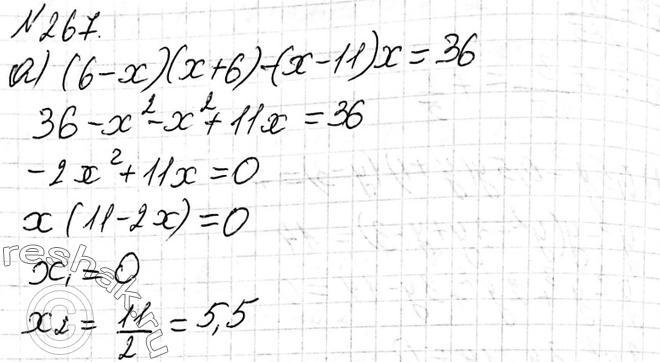 №267.
а) (6-x)(x+6)-(x-11)x=36
36-x²-x²+11x=36
-2x²+11x=0
x(11-2x)=0
x₁=0
x₂=11/2=5,5
reshak.ru